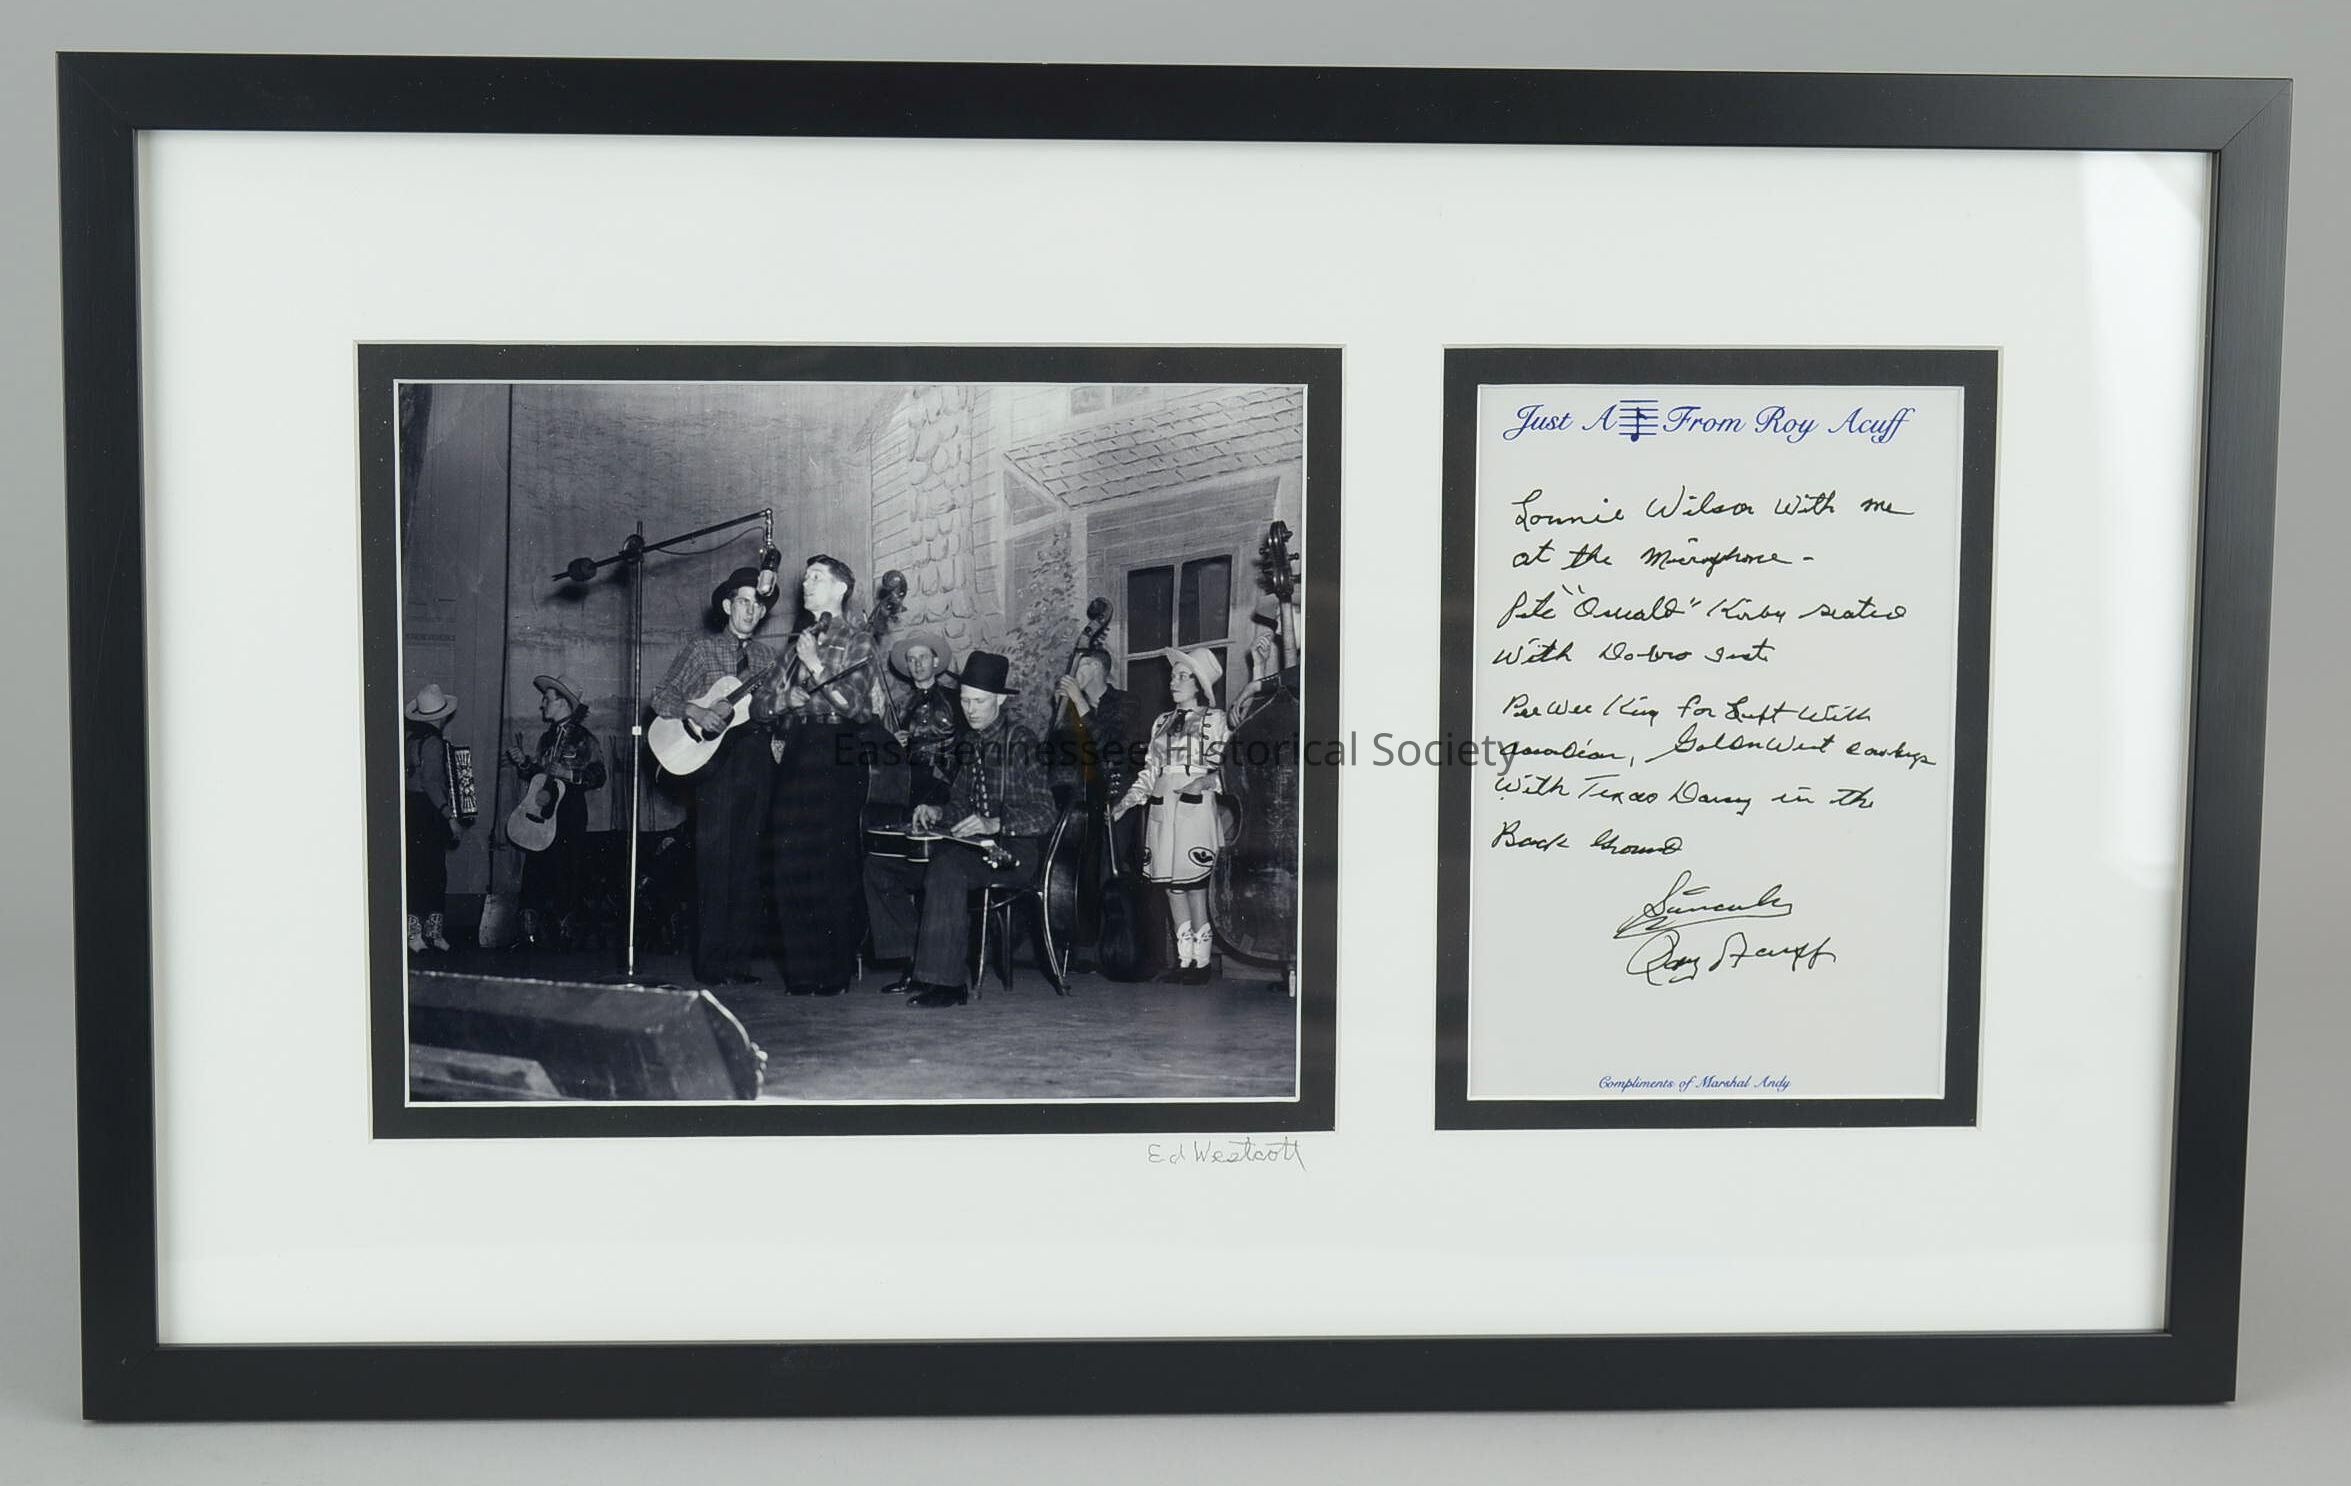 Just A From Roy Acuff
Lonnie Wilson With me
at the Microphone -
Pete "Oswald" Kirby seated
With Do-bro
Pee Wee King far Left With
Golden West Cowboys
With Texas Daisy in the
Back Ground
Sincerely
Roy Acuff
Compliments of Marshal Andy
Ed Westcott
East Tennessee Historical Society